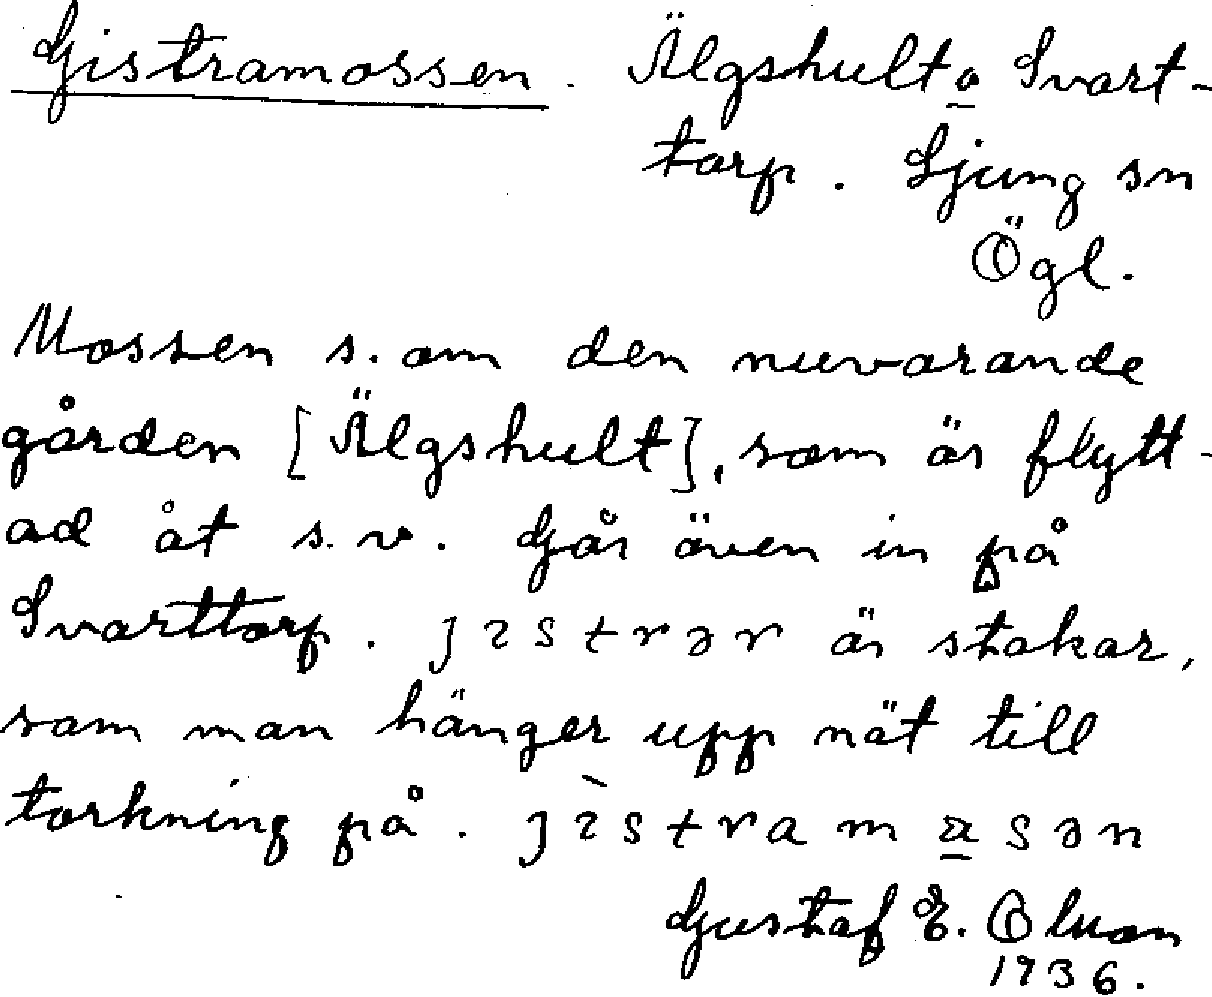 Gistramossen. Älgshult o Svart-
torp. Ljung sn
Ögl.
Mossen s. om den nuvarande
gården [Älgshult], som är flytt-
ad åt s.v. Går även in på
Svarttorp. jɪstrər är stakar,
som man hänger upp nät till
torkning på. jɪ̀stramɑsən
Gustaf E.
1936.